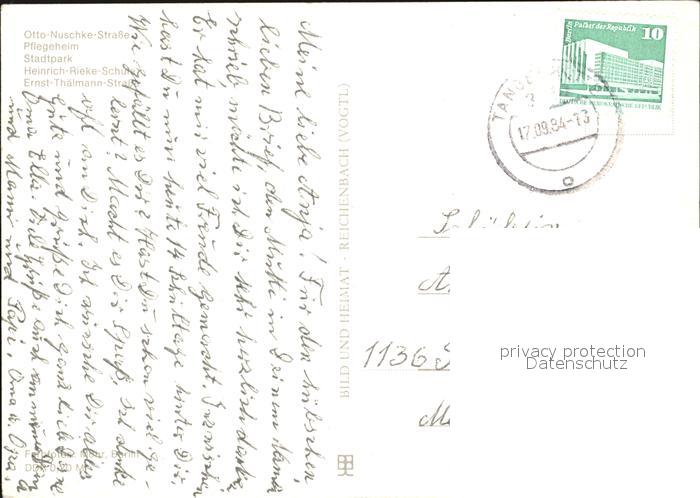 Otto-Nuschke-Straße
Pflegeheim
Stadtpark
Heinrich-Rieke-Schule
Ernst-Thälmann-Straße
Meine liebe Anja! Für den hübschen
lieben Brief, den Mutti in Deinem Namen
schrieb möchte ich Dir sehr herzlich danken.
Er hat mir viel Freude gemacht. Inzwischen
hast Du nun heute 14 Schultage hinter Dir.
Wie gefällt es Dir? Hast Du schon viel ge-
lernt? Macht es Dir Spaß. Ich denke
oft an Dich. Ich wünsche Dir alles
Gute und grüße Dich ganz lieb Deine
Oma Ella. Viele Grüße auch an
und Mami und Papi, Oma u. Opa,
BILD UND HEIMAT · REICHENBACH (VOGTL)
Berlin Palast der Republik 10
DEUTSCHE DEMOKRATISCHE REPUBLIK
17.09.84-13
Schülerin
1136
privacy protection
Datenschutz
Berlin